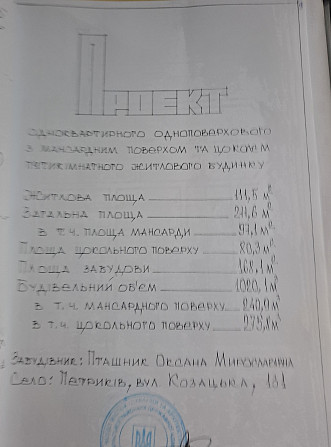 ПРОЕКТ
ОДНОКВАРТИРНОГО ОДНОПОВЕРХОВОГО
З МАНСАРДНИМ ПОВЕРХОМ ТА ЦОКОЛЕМ
ПЯТИКІМНАТНОГО ЖИТЛОВОГО БУДИНКУ
ЖИТЛОВА ПЛОЩА 111,5 м²
ЗАГАЛЬНА ПЛОЩА м²
В Т.Ч. ПЛОЩА МАНСАРДИ 97,1 м²
ПЛОЩА ЦОКОЛЬНОГО ПОВЕРХУ 80,3 м²
ПЛОЩА ЗАБУДОВИ 168,1 м²
БУДІВЕЛЬНИЙ ОБ'ЄМ м³
В Т.Ч. МАНСАРДНОГО ПОВЕРХУ м³
В Т.Ч. ЦОКОЛЬНОГО ПОВЕРХУ м³
ЗАБУДІВНИК: ПТАШНИК ОКСАНА
СЕЛО: ПЕТРИКІВ, ВУЛ КОЗАЦЬКА, 181